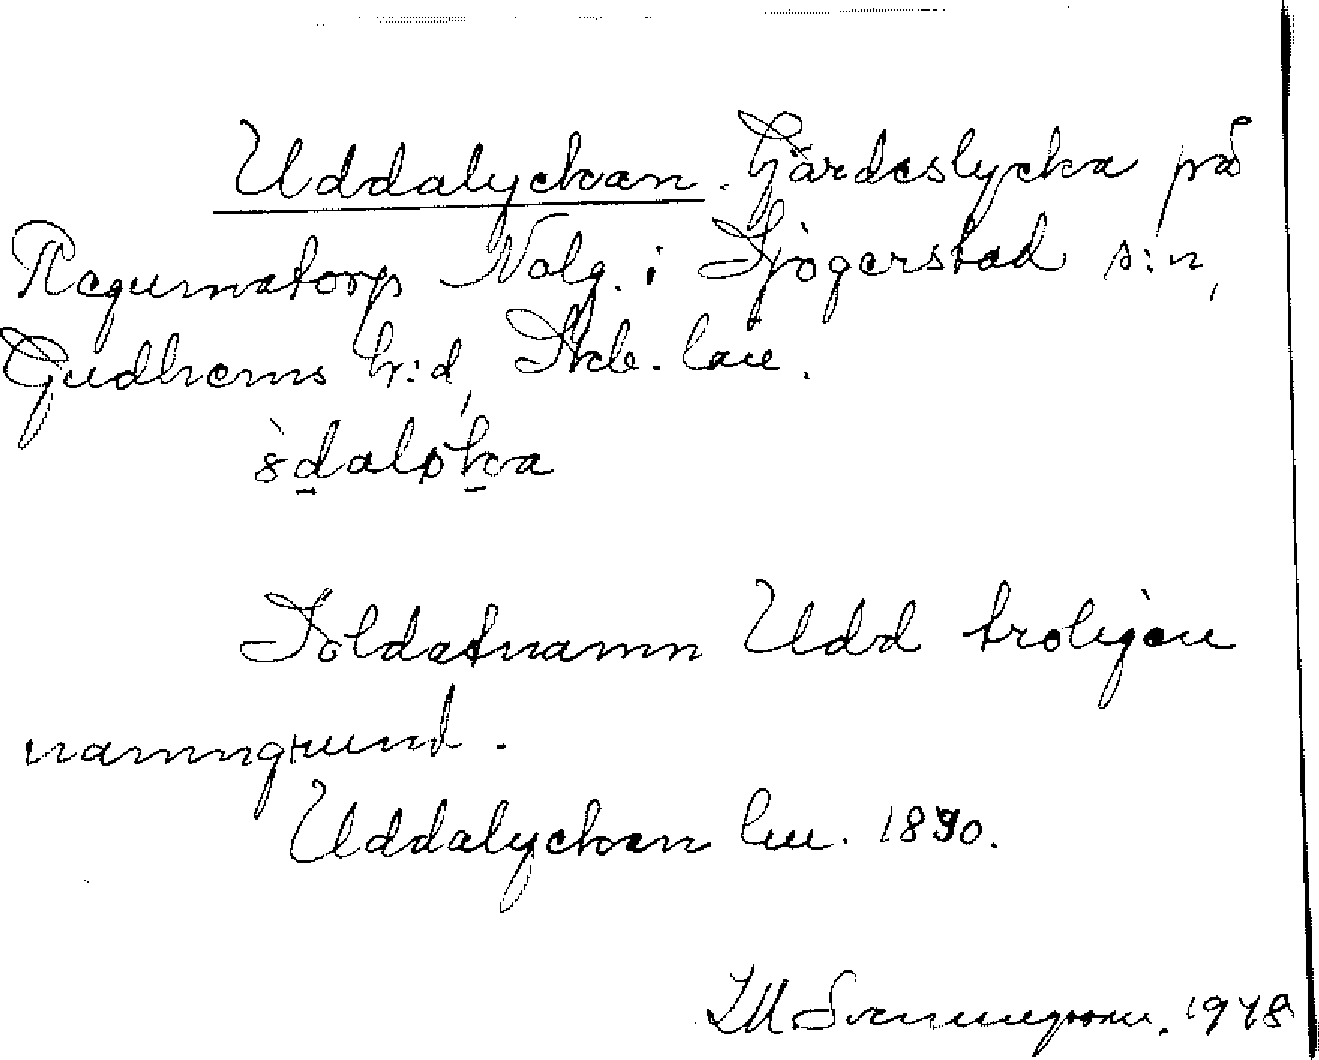 Uddalyckan. Gärdeslycka på
Ragumatorp Nolg. i Sjogerstad s:n,
Gudhems h:d, Skb. län.
ò̤dalo̤ka
Soldatnamn Udd troligen
namngrund.
Uddalyckan lm. 1890.
1948